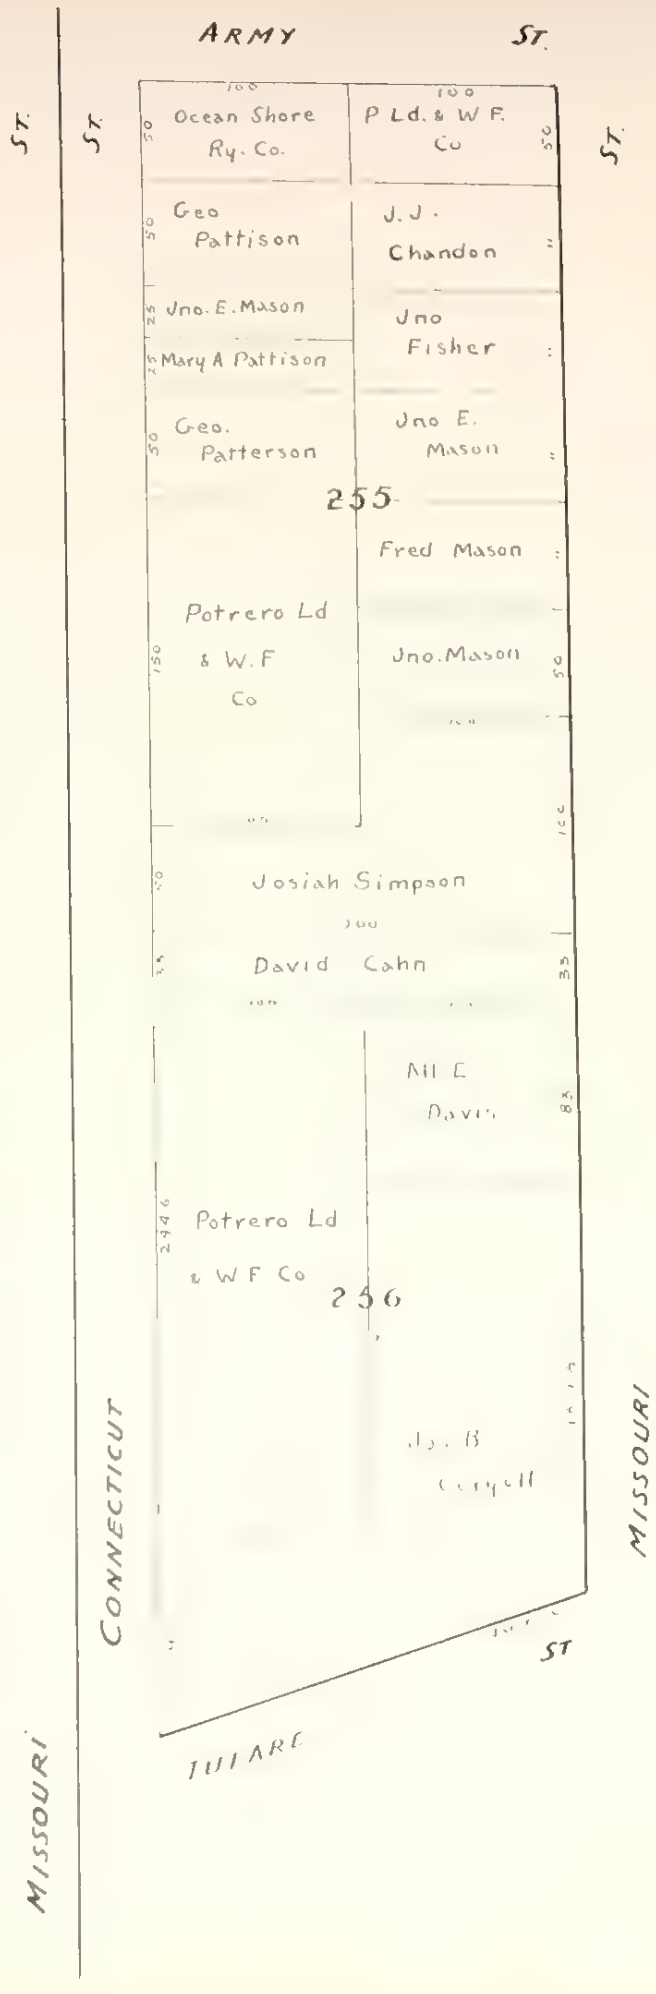 ARMY ST.
ST.
ST.
ST.
100
100
50
Ocean Shore
Ry. Co.
P Ld. & W F.
Co
50
50
Geo
Pattison
J. J.
Chandon
"
25
Jno. E. Mason
Jno
Fisher
"
25
Mary A Pattison
50
Geo.
Patterson
Jno E.
Mason
"
255
Fred Mason
"
150
Potrero Ld
& W. F
Co
Jno. Mason
50
100
Josiah Simpson
200
David Cahn
33
33
Davis
83
2946
Potrero Ld
& W F Co
256
B
CONNECTICUT
MISSOURI
ST
TULARE
MISSOURI